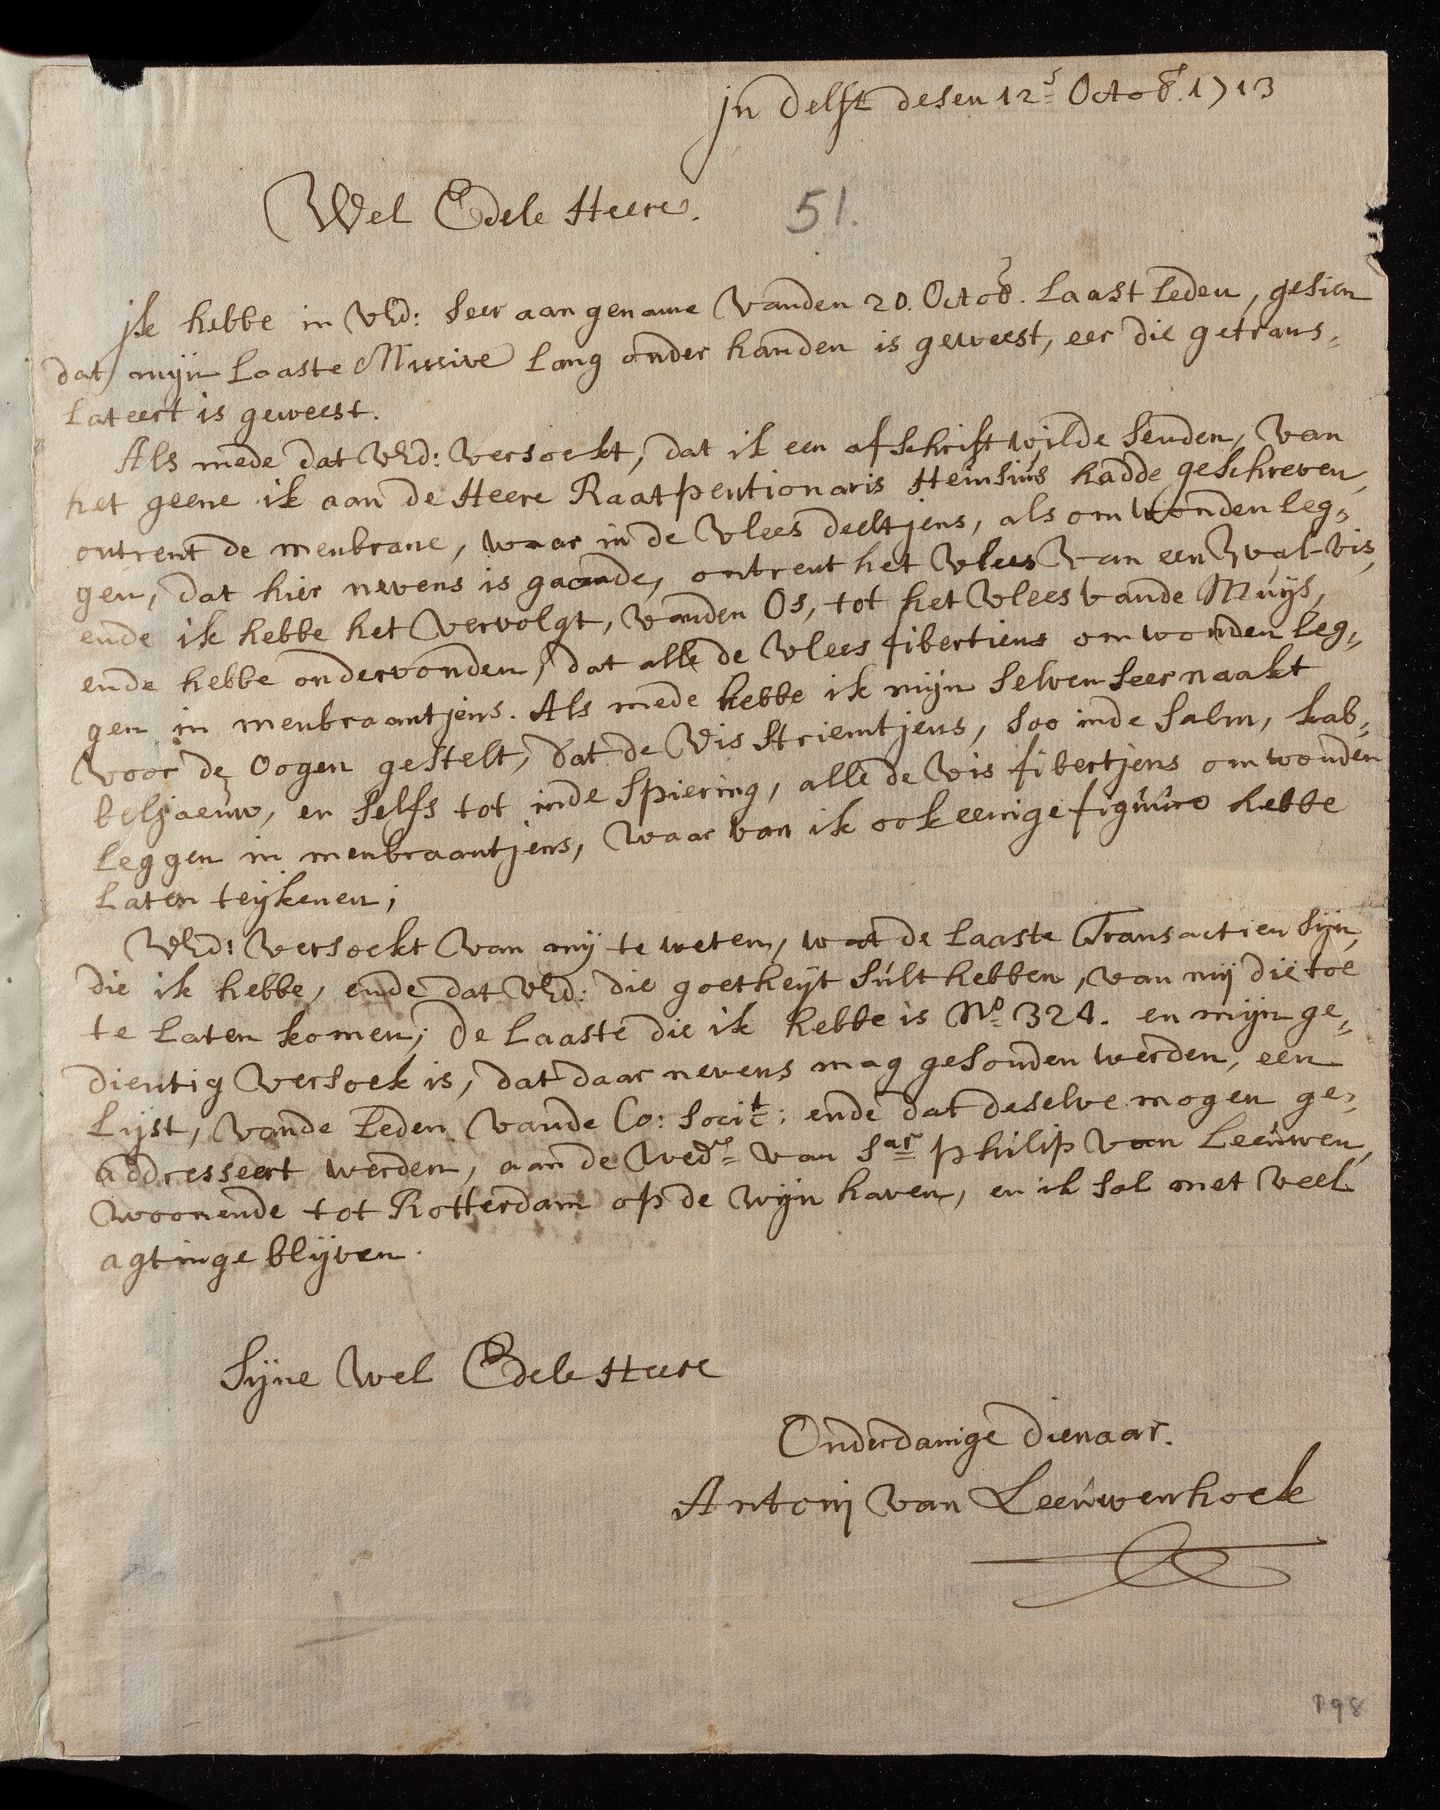 jn Delft desen 12e Octob. 1713
Wel Edele Heere.
51.
jk hebbe in UEd: seer aan gename vanden 20. Octob. laast leden, gesien
dat mijn laaste Missive lang onder handen is geweest, eer die getrans,
lateert is geweest.
Als mede dat UEd: versoekt, dat ik een afschrift wilde senden, van
het geene ik aan de Heere Raatpentionaris Heinsius hadde geschreven,
ontrent de menbrane, waar in de vlees deeltjens, als omwonden leg,
gen, dat hier nevens is gaande, ontrent het vlees van een Walvis,
ende ik hebbe het vervolgt, vanden Os, tot het vlees vande Muijs,
ende hebbe ondervonden, dat alle de vlees fibertiens omwonden leg,
gen in menbraantjens. Als mede hebbe ik mijn selven seer naakt
voor de oogen gestelt, dat de vis striemtjens, soo inde salm, kab,
beljaeuw, en selfs tot inde spiering, alle de vis fibertjens omwonden
leggen in menbraantjens, waar van ik ook eenige figuure hebbe
laten teijkenen;
UEd: versoekt van mij te weten, wat de laaste Transactien sijn,
die ik hebbe, ende dat UEd: die goetheijt sult hebben, van mij die toe
te laten komen; De laaste die ik hebbe is No 324. en mijn ge,
dientig versoek is, dat daar nevens mag gesonden werden, een
Lijst, vande Leden vande Co: Socit: ende dat deselve mogen ge,
addresseert werden, aan de Wede van Sar philip van Leeuwen,
woonende tot Rotterdam op de wijn haven, en ik sal met veel
agtinge blijven.
Sijne Wel Edele Heere
Onderdanige Dienaar.
Antonj van Leeuwenhoek
198